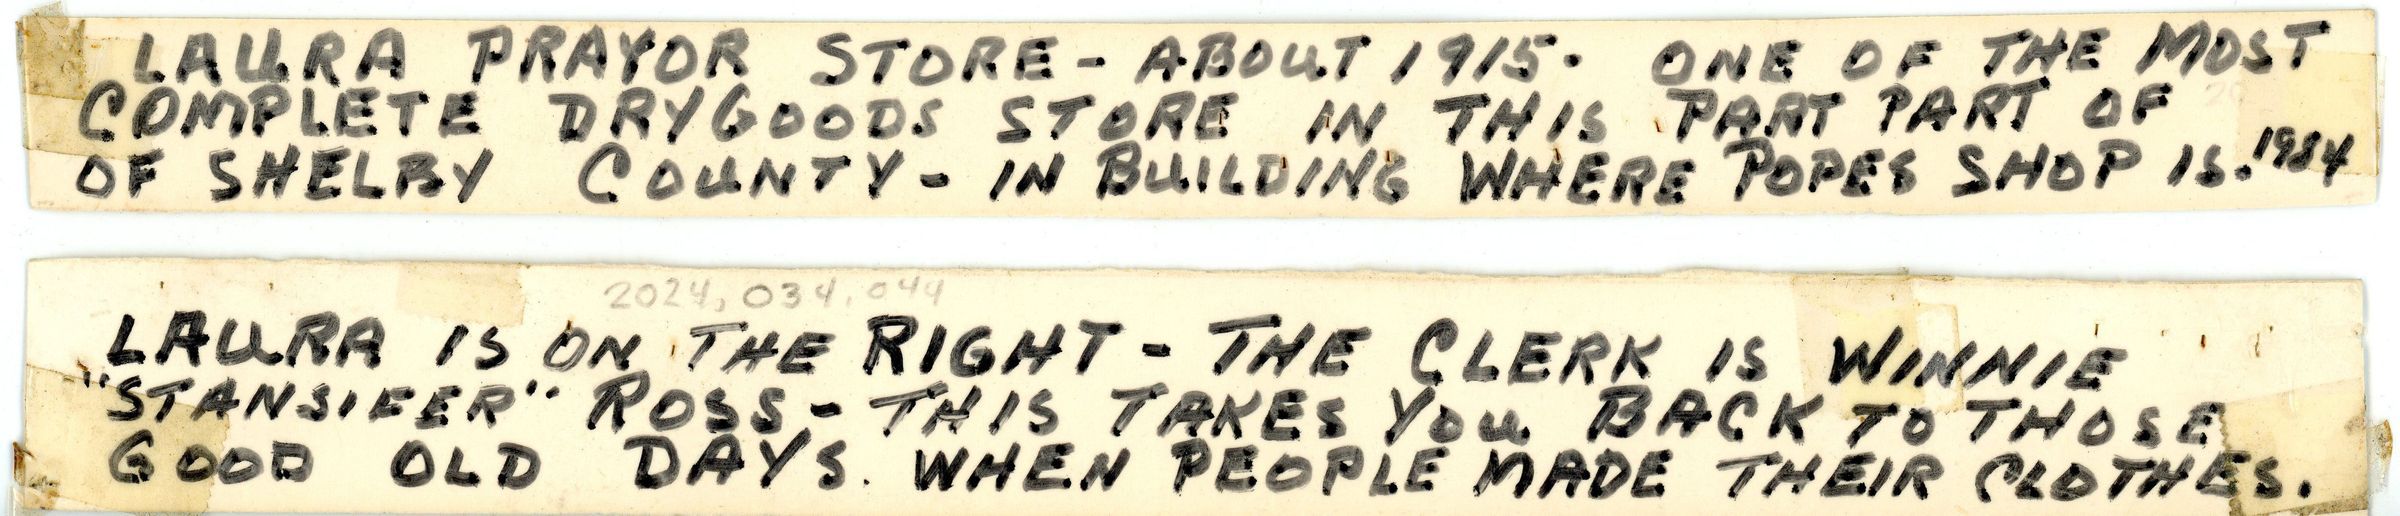 LAURA PRAYOR STORE - ABOUT 1915. ONE OF THE MOST
COMPLETE DRYGOODS STORE IN THIS PART PART OF
OF SHELBY COUNTY - IN BUILDING WHERE POPES SHOP IS. 1984
2024, 034. 044
LAURA IS ON THE RIGHT - THE CLERK IS WINNIE
"STANSIFER" ROSS - THIS TAKES YOU BACK TO THOSE
GOOD OLD DAYS. WHEN PEOPLE MADE THEIR CLOTHES.